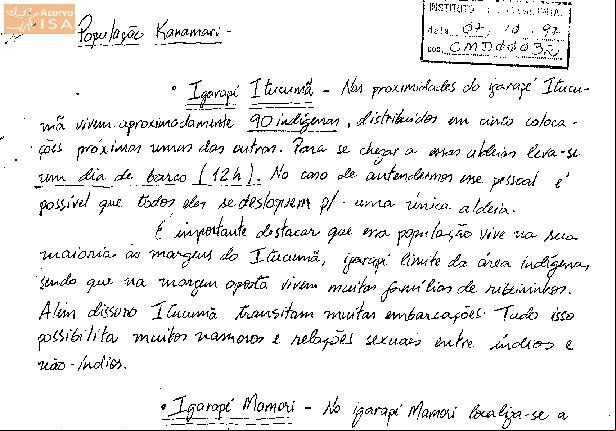 Acervo
ISA
INSTITUTO
data 07, 10, 97
cod. CMD00032
População Kanamari -
• Igarapé Itucumã - Nas proximidades do igarapé Itucu-
mã vivem aproximadamente 90 indígenas, distribuídos em cinco coloca-
ções próximas umas das outras. Para se chegar a essas aldeias leva-se
um dia de barco (12h). No caso de atendermos esse pessoal é
possível que todos eles se desloquem p/ uma única aldeia.
É importante destacar que essa população vive na sua
maioria às margens do Itucumã, igarapé limite da área indígena,
sendo que na margem oposta vivem muitas famílias de ribeirinhos.
Além disso no Itucumã transitam muitas embarcações. Tudo isso
possibilita muitos namoros e relações sexuais entre índios e
não-índios.
• Igarapé Mamori - No igarapé Mamori localiza-se a